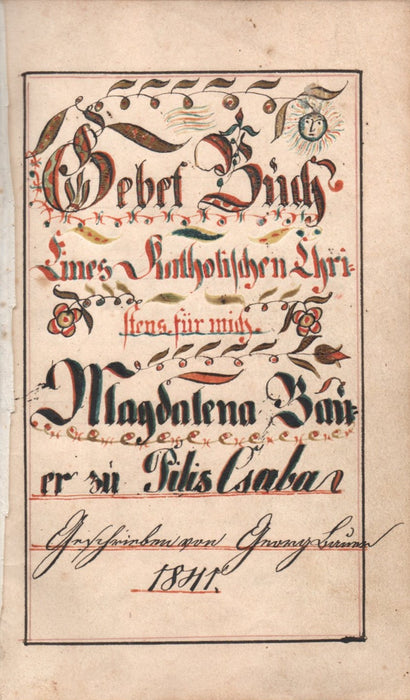 Gebet Buch
Eines Katholischen Chri-
stens für mich.
Magdalena Bau-
er zu Pilis Csaba
Geschrieben von Georg Bauer
1841.